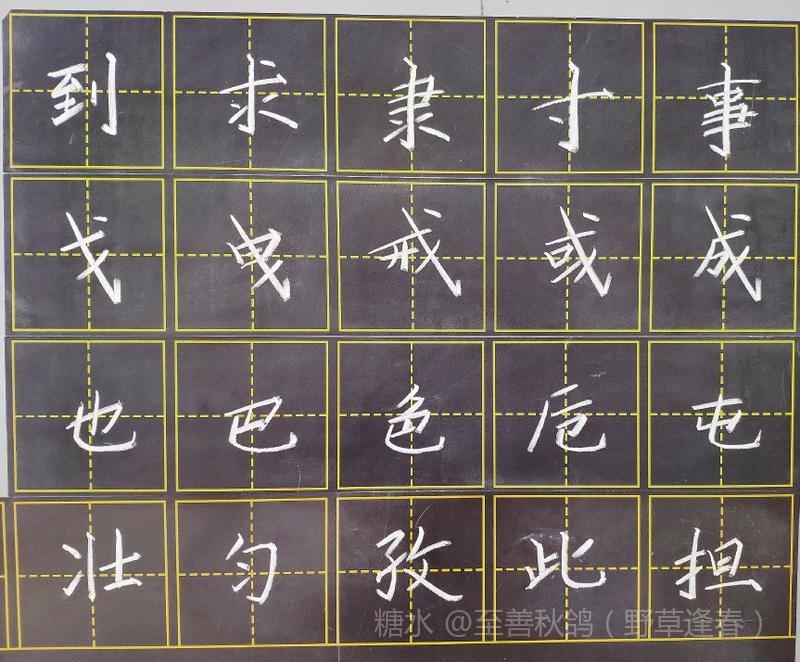 到求隶寸事
戈曳戒或成
也巴色卮屯
壮匀孜此担
糖水 @至善秋鸽（野草逢春）